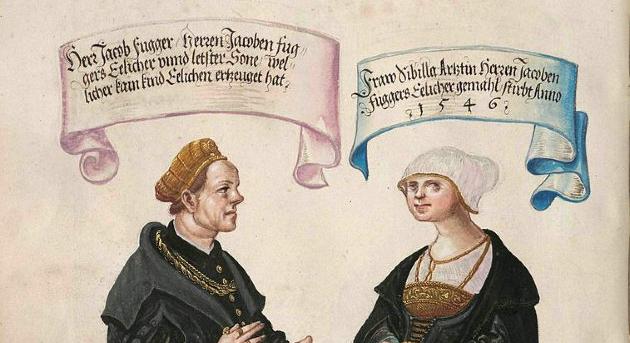 Herr Jacob Fugger / Herren Jacoben Fug¬
gers Eelicher vnnd letster Sone / wel¬
licher kain kind Eelichen ertzeuget hat.
Fraw Sibilla Arztin Herren Jacoben
Fuggers Eelicher gemahl / stirbt Anno
1546.